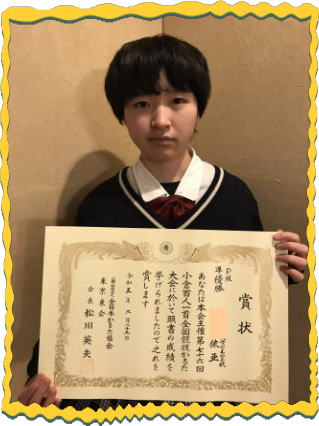 賞状
D級
準優勝
依亜
あなたは本会主催第七十六回
小倉百人一首全国競技かるた
大会に於いて頭書の成績を
挙げられましたので之れを
賞します
令和五年
一般社団法人全日本かるた協会
東京東会
会長 松川英夫